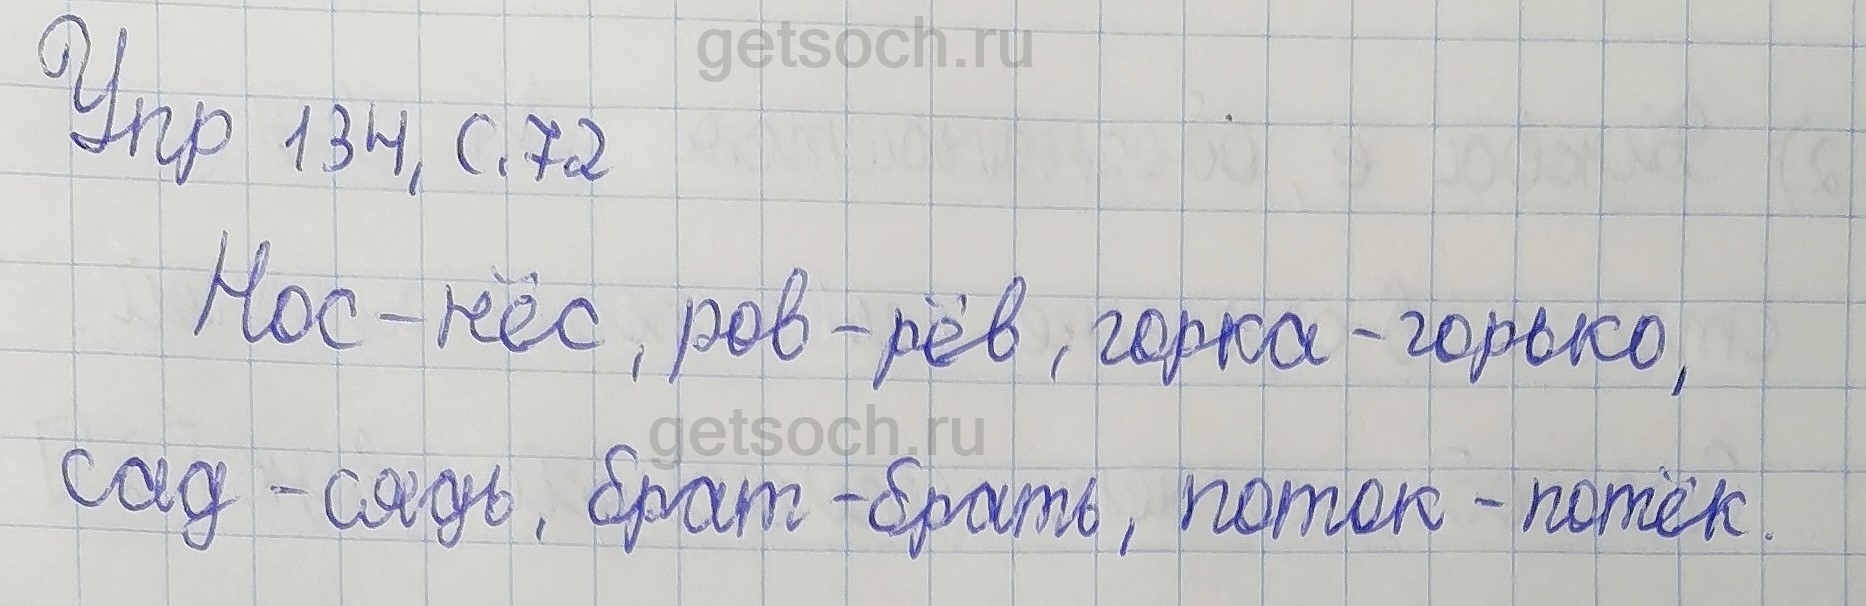 getsoch.ru
Упр 134, с. 72
Нос - нёс, ров - рёв, горка - горько,
getsoch.ru
сад - сядь, брат - брать, поток - потёк.